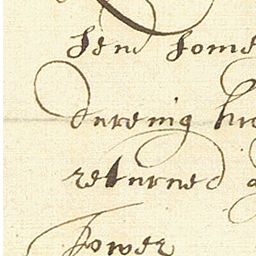 send some
dureing his
returned
Tower